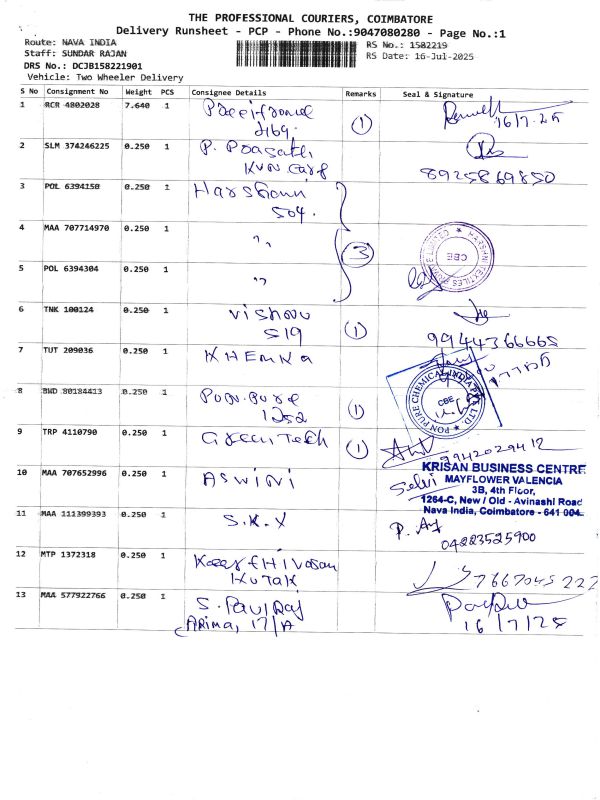 THE PROFESSIONAL COURIERS, COIMBATORE
Delivery Runsheet - PCP - Phone No.:9047080280 - Page No.:1
Route: NAVA INDIA
RS No.: 1582219
Staff: SUNDAR RAJAN
RS Date: 16-Jul-2025
DRS No.: DCJB158221901
Vehicle: Two Wheeler Delivery
S No Consignment No Weight PCS Consignee Details Remarks Seal & Signature
1 RCR 4802028 7.640 1
(1) 16/7/25
2 SLM 374246225 0.250 1 P. Prasath
8925869850
3 POL 6394150 0.250 1 Harshini
504.
4 MAA 707714970 0.250 1 ,,
(3)
HARSHNI TEXTILES PRIVATE LIMITED
CBE
5 POL 6394304 0.250 1 ,,
6 TNK 100124 0.250 1 Vishnu
519 (1) 9944366665
7 TUT 209036 0.250 1 KHEMKA
8 BWD 80184413 0.250 1 Pon.Pure
1252 (1)
PON PURE CHEMICAL INDIA PVT. LTD.
CBE
9 TRP 4110790 0.250 1 Green Tech (1)
9942029412
10 MAA 707652996 0.250 1 ASWINI
Selvi
KRISAN BUSINESS CENTRE
MAYFLOWER VALENCIA
3B, 4th Floor,
1264-C, New / Old - Avinashi Road
Nava India, Coimbatore - 641 004.
11 MAA 111399393 0.250 1 S.K.X
04223525900
12 MTP 1372318 0.250 1 Keerthivasan
Kotak
7667045222
13 MAA 577922766 0.250 1 S. Paulraj
Arima, 17/A
16/7/25